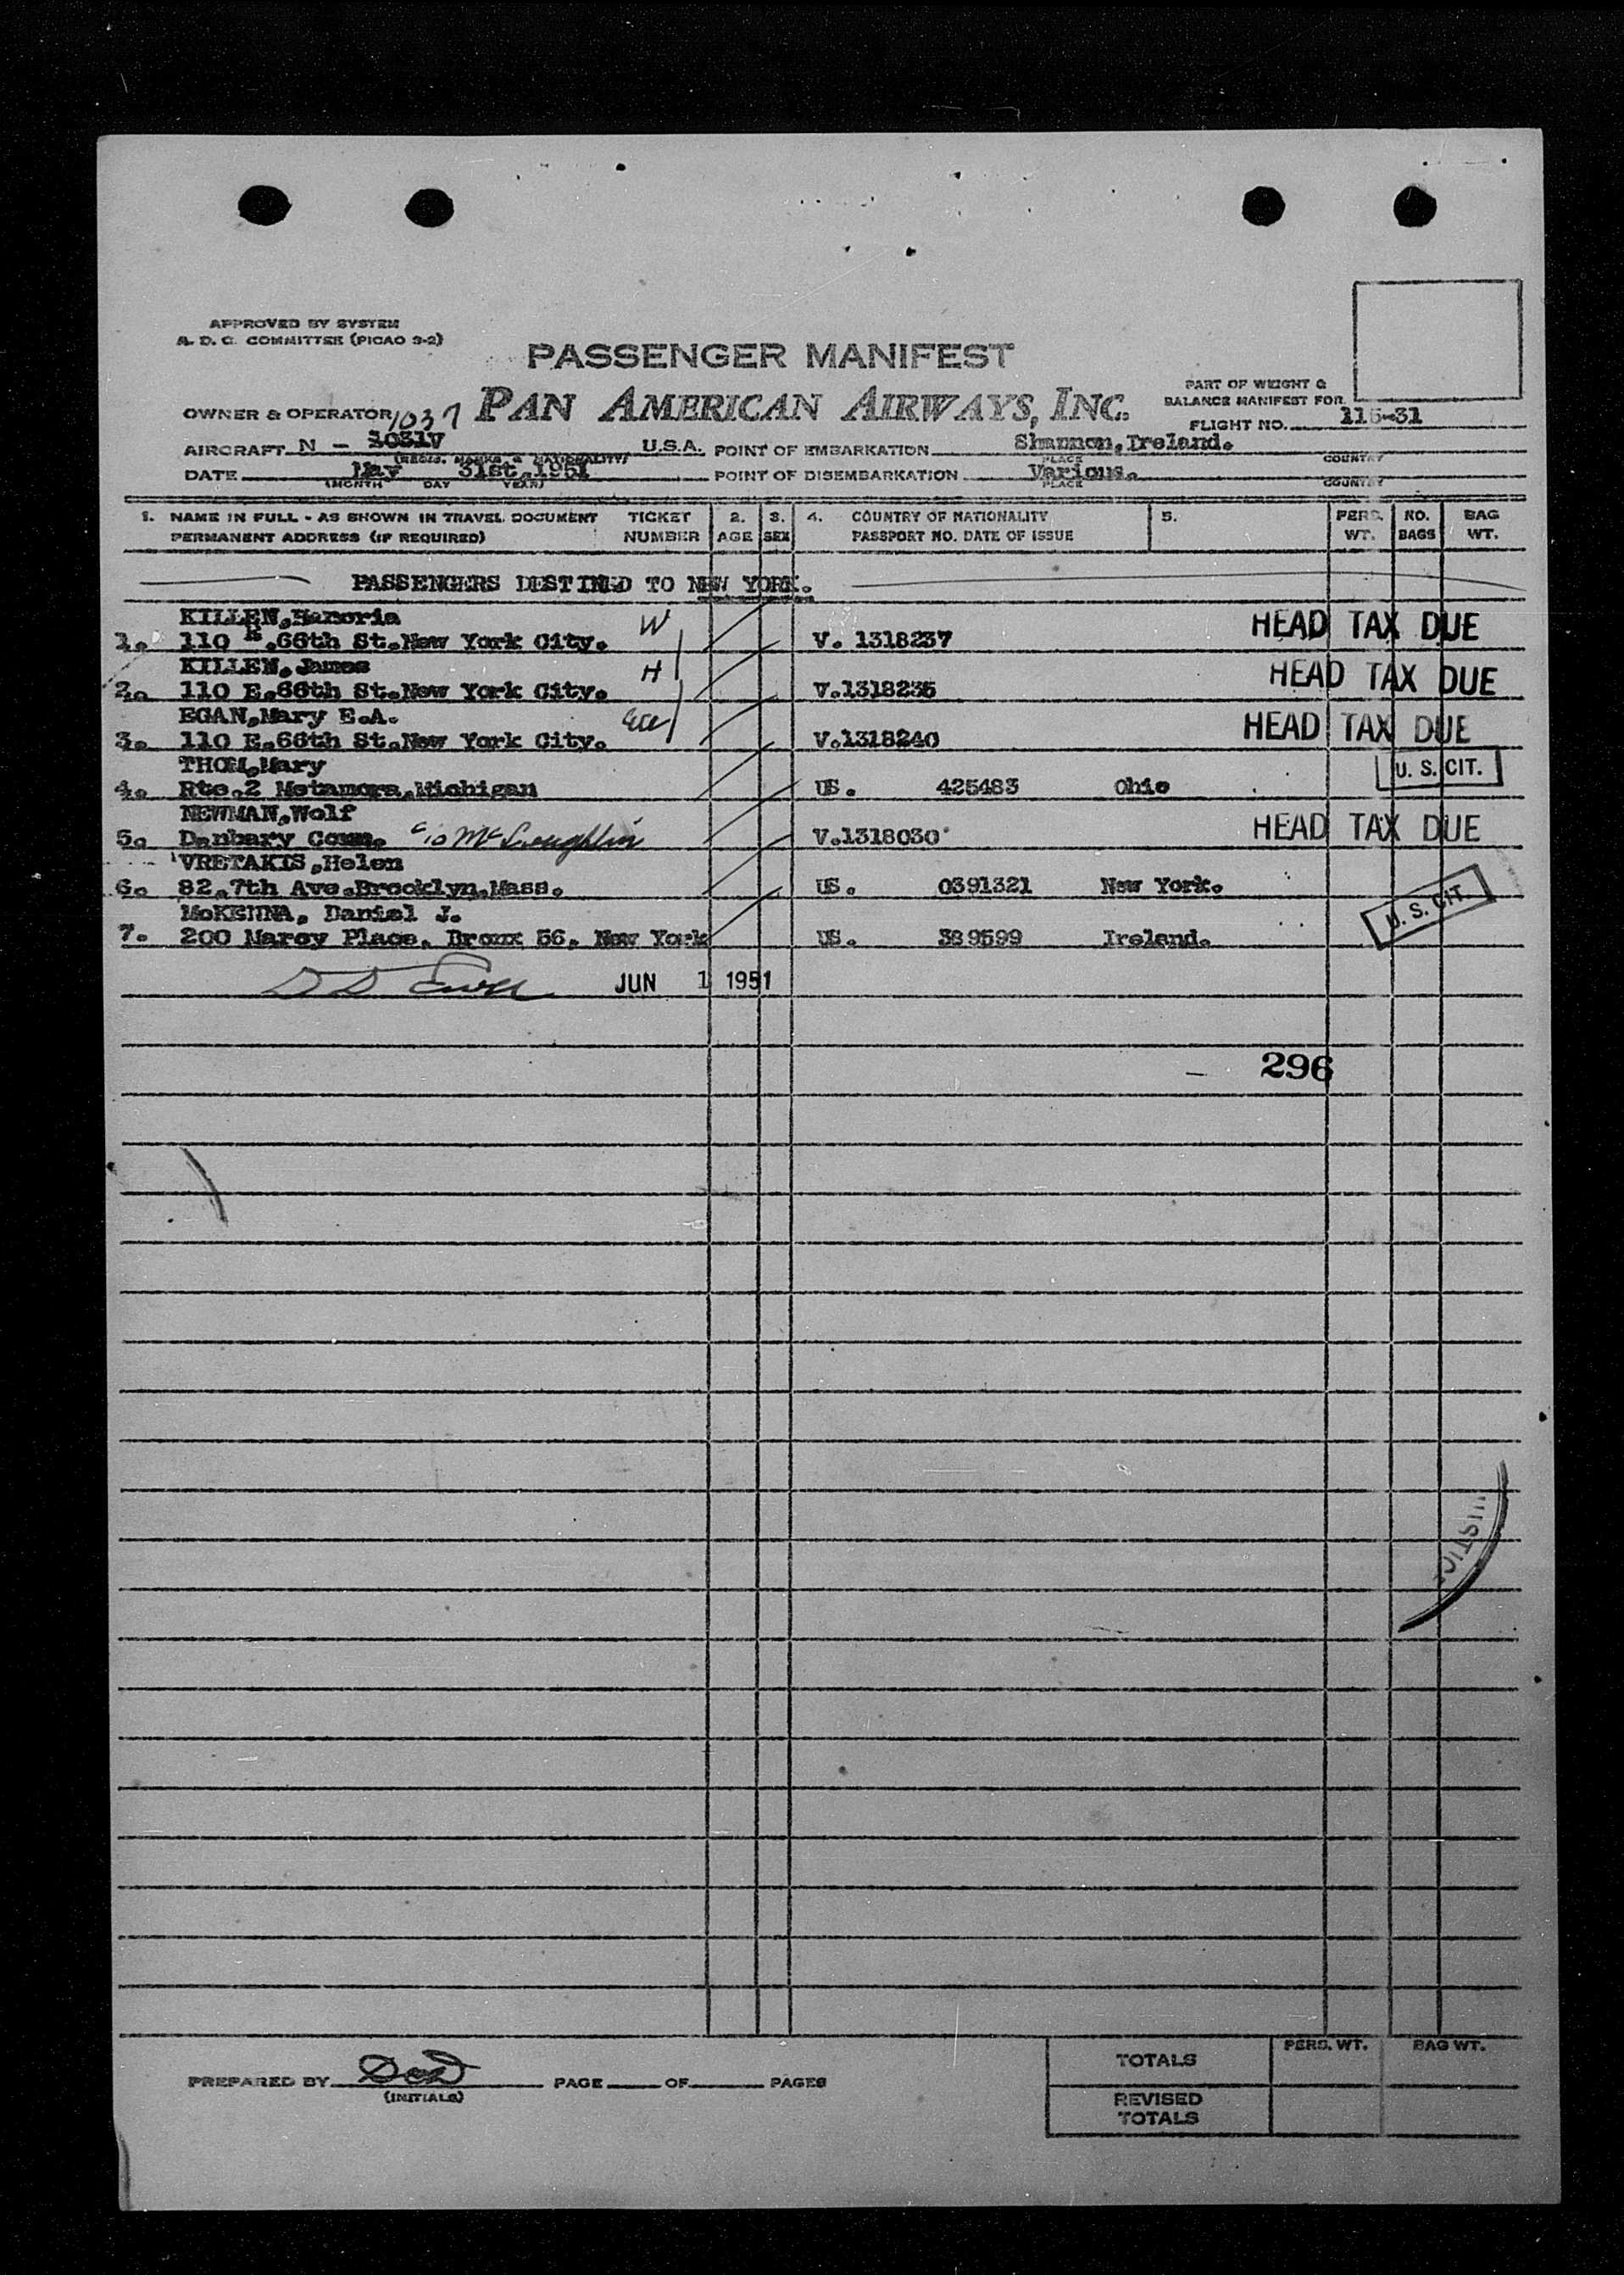 APPROVED BY SYSTEM
A. D. C. COMMITTEE (PICAO 9-2)
PASSENGER MANIFEST
PAN AMERICAN AIRWAYS, INC.
PART OF WEIGHT &
BALANCE MANIFEST FOR
OWNER & OPERATOR 1037
FLIGHT NO. 115-31
AIRCRAFT N - 1031V U.S.A. POINT OF EMBARKATION Shannon,Ireland.
(REGIS. MARKS & NATIONALITY) PLACE COUNTRY
DATE May 31st,1951 POINT OF DISEMBARKATION Various.
(MONTH DAY YEAR) PLACE COUNTRY
1. NAME IN FULL - AS SHOWN IN TRAVEL DOCUMENT TICKET 2. 3. 4. COUNTRY OF NATIONALITY 5. PERS. NO. BAG
PERMANENT ADDRESS (IF REQUIRED) NUMBER AGE SEX PASSPORT NO. DATE OF ISSUE WT. BAGS WT.
PASSENGERS DESTINED TO NEW YORK.
KILLEN,Hanoria W HEAD TAX DUE
1. 110 E.66th St.New York City. V. 1318237
KILLEN,James H HEAD TAX DUE
2. 110 E.66th St.New York City. V.1318235
EGAN,Mary E.A. HEAD TAX DUE
3. 110 E.66th St.New York City. V.1318240
THOM,Mary U. S. CIT.
4. Rte.2 Metamora,Michigan US. 425483 Ohio
NEWMAN,Wolf HEAD TAX DUE
5. Danbary Conn. c/o McLoughlin V.1318030
VRETAKIS,Helen
6. 82,7th Ave.Brooklyn,Mass. US. 0391321 New York.
McKENNA, Daniel J. U. S. CIT.
7. 200 Marcy Place, Bronx 56, New York US. 389599 Ireland.
JUN 1 1951
296
JUSTICE
TOTALS PERS. WT. BAG WT.
PREPARED BY DoD PAGE OF PAGES
(INITIALS)
REVISED
TOTALS